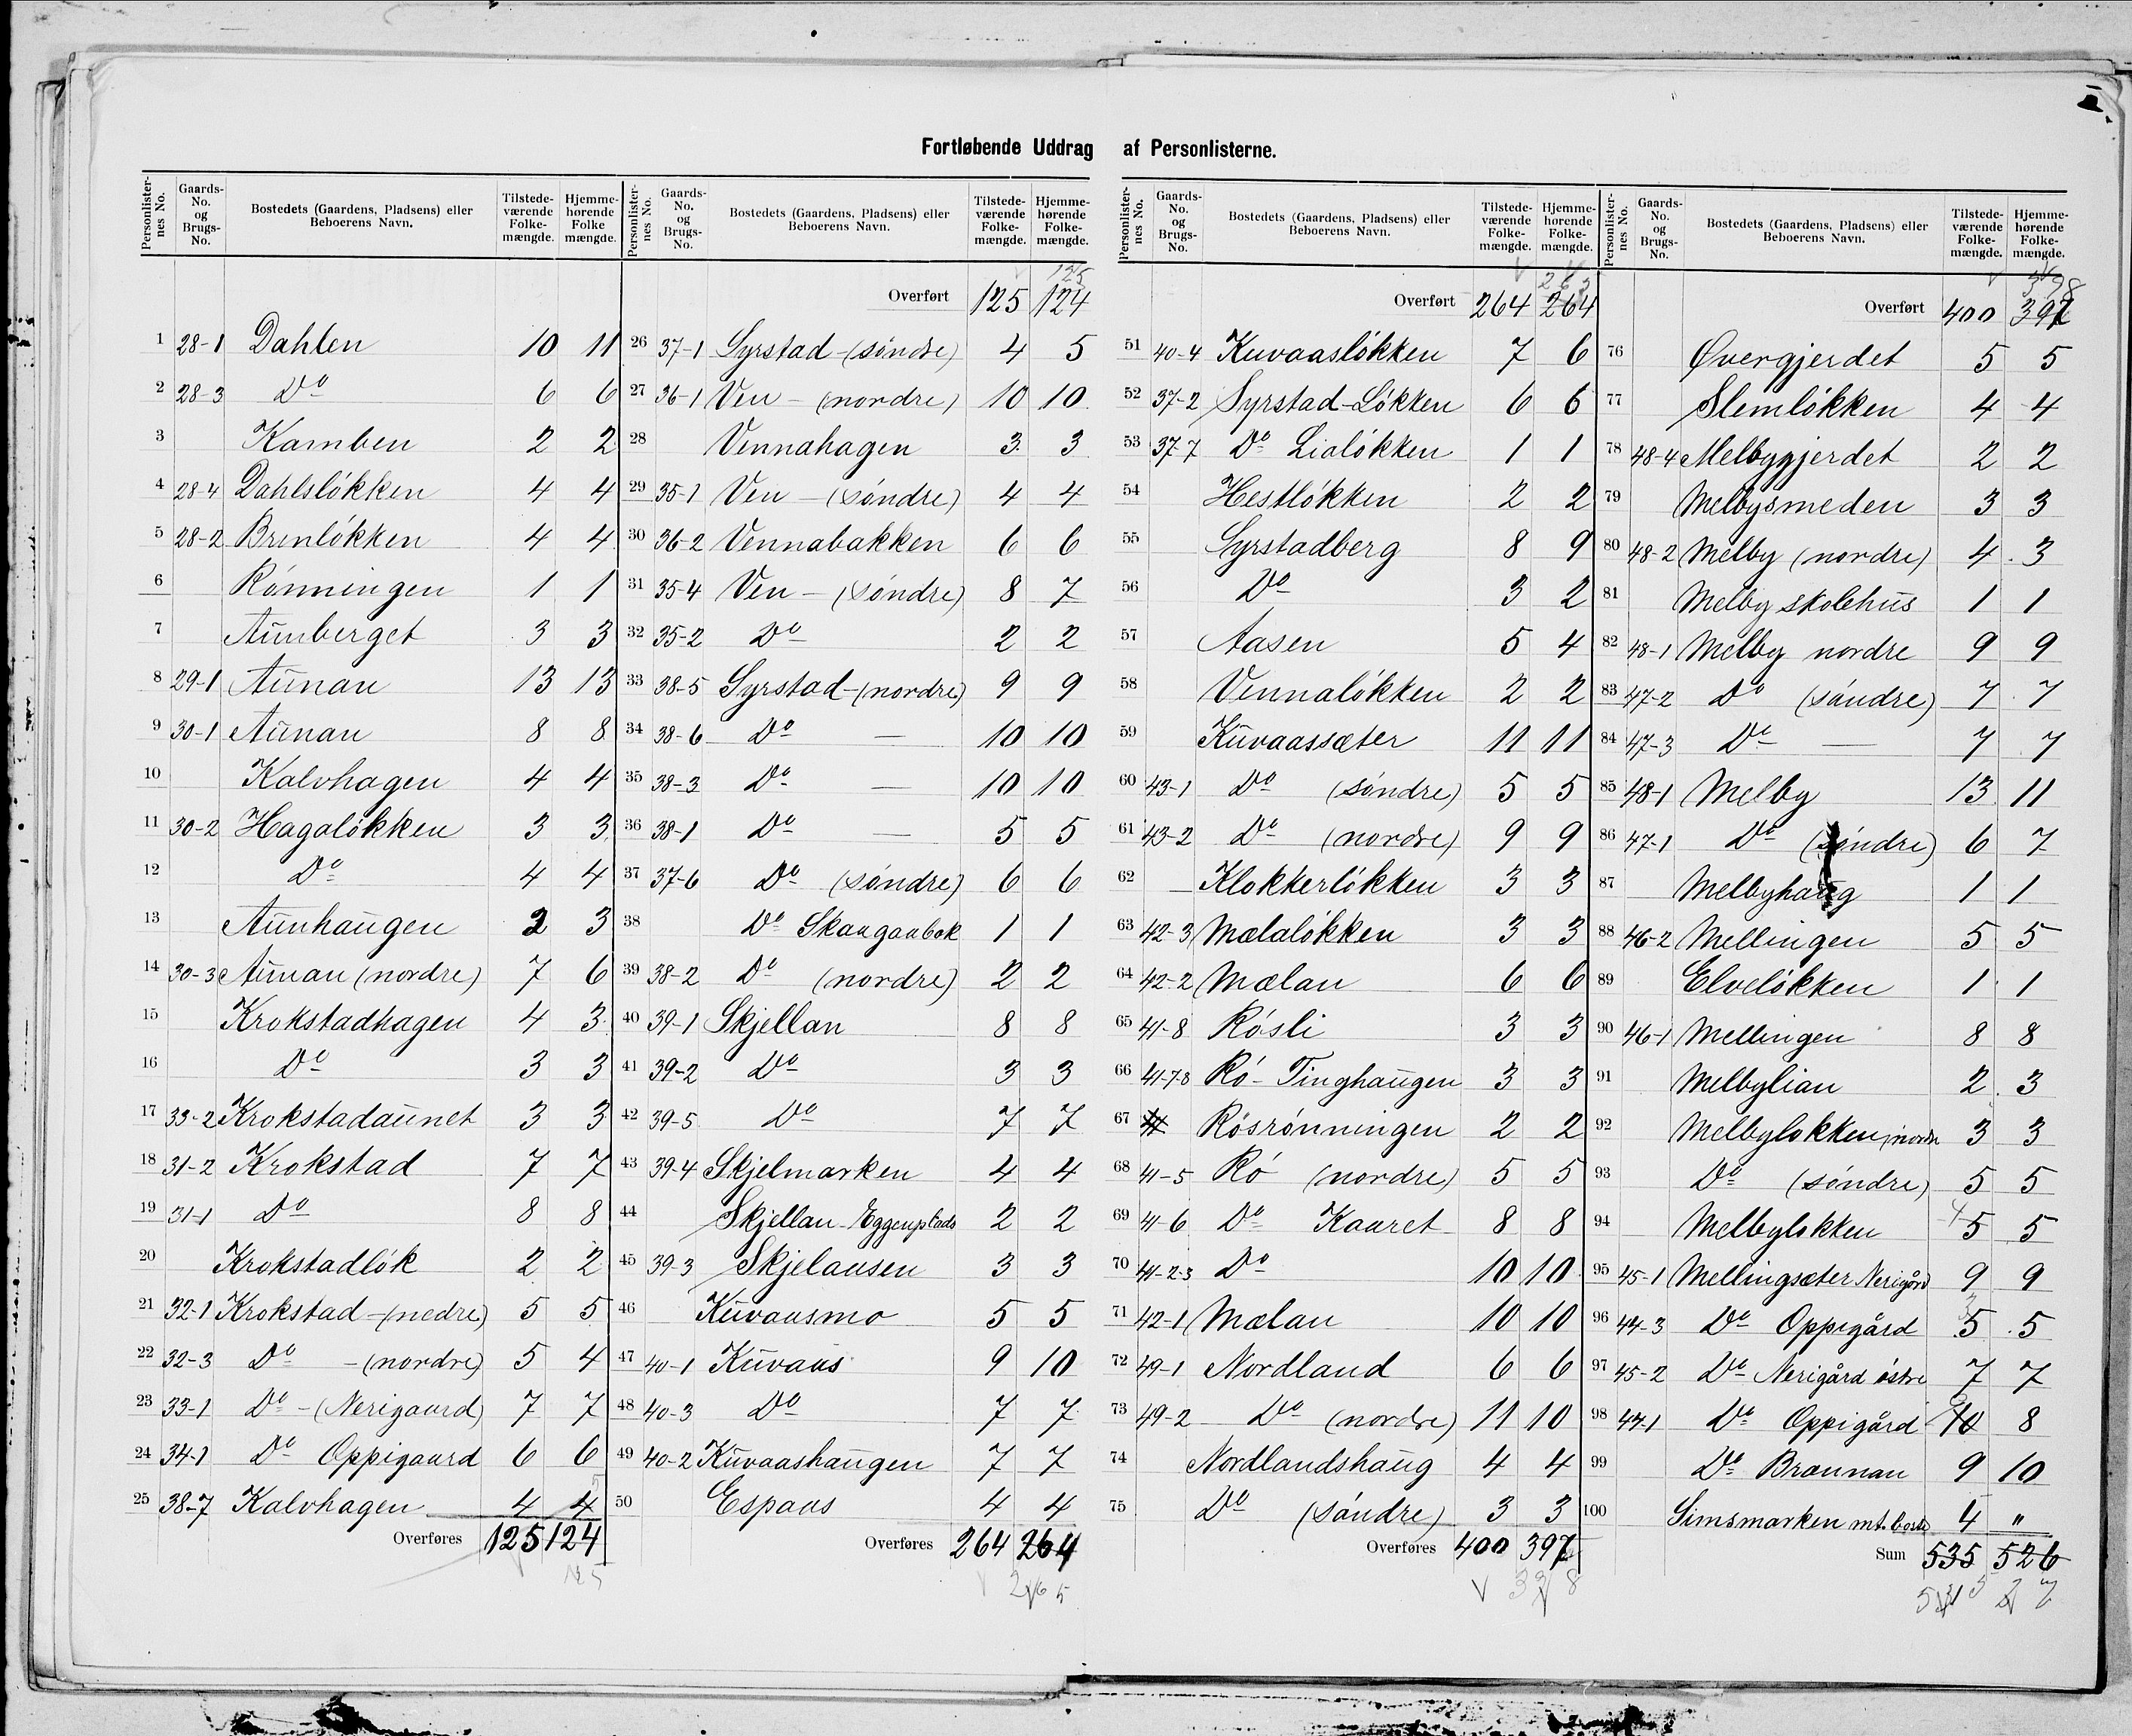 Fortløbende Uddrag af Personlisterne.
Personlisternes No. Gaards-No. og Brugs-No. Bostedets (Gaardens, Pladsens) eller Beboerens Navn. Tilstedeværende Folkemængde. Hjemmehørende Folkemængde.
1 28-1 Dahlen 10 11
2 28-3 Do 6 6
3 Kamben 2 2
4 28-4 Dahlsløkken 4 4
5 28-2 Brenløkken 4 4
6 Rønningen 1 1
7 Aunberget 3 3
8 29-1 Aunan 13 13
9 30-1 Aunan 8 8
10 Kalvhagen 4 4
11 30-2 Hagaløkken 3 3
12 Do 4 4
13 Aunhaugen 2 3
14 30-3 Aunan (nordre) 7 6
15 Krokstadhagen 4 3
16 Do 3 3
17 33-2 Krokstadaunet 3 3
18 31-2 Krokstad 7 7
19 31-1 Do 8 8
20 Krokstadløk 2 2
21 32-1 Krokstad-(nedre) 5 5
22 32-3 Do -(nordre) 5 4
23 33-1 Do -(Nerigaard) 7 7
24 34-1 Do Oppigaard 6 6
25 38-7 Kalvhagen 4 4 5
Overføres 125 124
125
Personlisternes No. Gaards-No. og Brugs-No. Bostedets (Gaardens, Pladsens) eller Beboerens Navn. Tilstedeværende Folkemængde. Hjemmehørende Folkemængde.
125
Overført 125 124
26 37-1 Syrstad-(søndre) 4 5
27 36-1 Ven - (nordre) 10 10
28 Vennahagen 3 3
29 35-1 Ven - (søndre) 4 4
30 36-2 Vennabakken 6 6
31 35-4 Ven - (søndre) 8 7
32 35-2 Do 2 2
33 38-5 Syrstad-(nordre) 9 9
34 38-6 Do — 10 10
35 38-3 Do — 10 10
36 38-1 Do — 5 5
37 37-6 Do (søndre) 6 6
38 Do Skaugaabak 1 1
39 38-2 Do (nordre) 2 2
40 39-1 Skjellan 8 8
41 39-2 Do 3 3
42 39-5 Do 7 7
43 39-4 Skjelmarken 4 4
44 Skjellan-Eggenplads 2 2
45 39-3 Skjelansen 3 3
46 Kuvaasmo 5 5
47 40-1 Kuvaas 9 10
48 40-3 Do 7 7
49 40-2 Kuvaashaugen 7 7
50 Espaas 4 4
Overføres 264 264
265
Personlisternes No. Gaards-No. og Brugs-No. Bostedets (Gaardens, Pladsens) eller Beboerens Navn. Tilstedeværende Folkemængde. Hjemmehørende Folkemængde.
Overført 264 264
51 40-4 Kuvaasløkken 7 6
52 37-2 Syrstad-Løkken 6 6
53 37-7 Do Lialøkken 1 1
54 Hestløkken 2 2
55 Syrstadberg 8 9
56 Do 3 2
57 Aasen 5 4
58 Vennaløkken 2 2
59 Kuvaassæter 11 11
60 43-1 Do (søndre) 5 5
61 43-2 Do (nordre) 9 9
62 Klokkerløkken 3 3
63 42-3 Mælaløkken 3 3
64 42-2 Mælan 6 6
65 41-8 Røsli 3 3
66 41-7-8 Rø-Tinghaugen 3 3
67 Røsrønningen 2 2
68 41-5 Rø (nordre) 5 5
69 41-6 Do Kaaret 8 8
70 41-2-3 Do 10 10
71 42-1 Mælan 10 10
72 49-1 Nordland 6 6
73 49-2 Do (nordre) 11 10
74 Nordlandshaug 4 4
75 Do (søndre) 3 3
Overføres 400 397
398
Personlisternes No. Gaards-No. og Brugs-No. Bostedets (Gaardens, Pladsens) eller Beboerens Navn. Tilstedeværende Folkemængde. Hjemmehørende Folkemængde.
398
Overført 400 397
76 Øvergjerdet 5 5
77 Slemløkken 4 4
78 48-4 Melbygjerdet 2 2
79 Melbysmeden 3 3
80 48-2 Melby (nordre) 4 3
81 Melby skolehus 1 1
82 48-1 Melby nordre 9 9
83 47-2 Do (søndre) 7 7
84 47-3 Do — 7 7
85 48-1 Melby 13 11
86 47-1 Do (søndre) 6 7
87 Melbyhaug 1 1
88 46-2 Mellingen 5 5
89 Elveløkken 1 1
90 46-1 Mellingen 8 8
91 Melbylian 2 3
92 Melbyløkken, nordre 3 3
93 Do (søndre) 5 5
94 Melbyløkken 5 5
95 45-1 Mellingsæter Nerigård 9 9
96 44-3 Do Oppigård 5 5
97 45-2 Do Nerigård østre 7 7
98 44-1 Do Oppigård 10 8
99 Do Braunan 9 10
100 Simsmarken 4 "
Sum 535 526